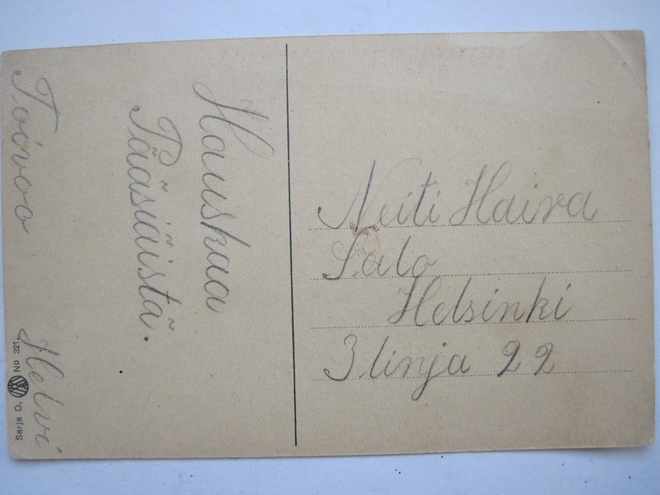 Hauskaa
Pääsiäistä.
Toivoo Helvi
Neiti Haiva
Salo
Helsinki
3 linja 22
Sarja D. No 321.